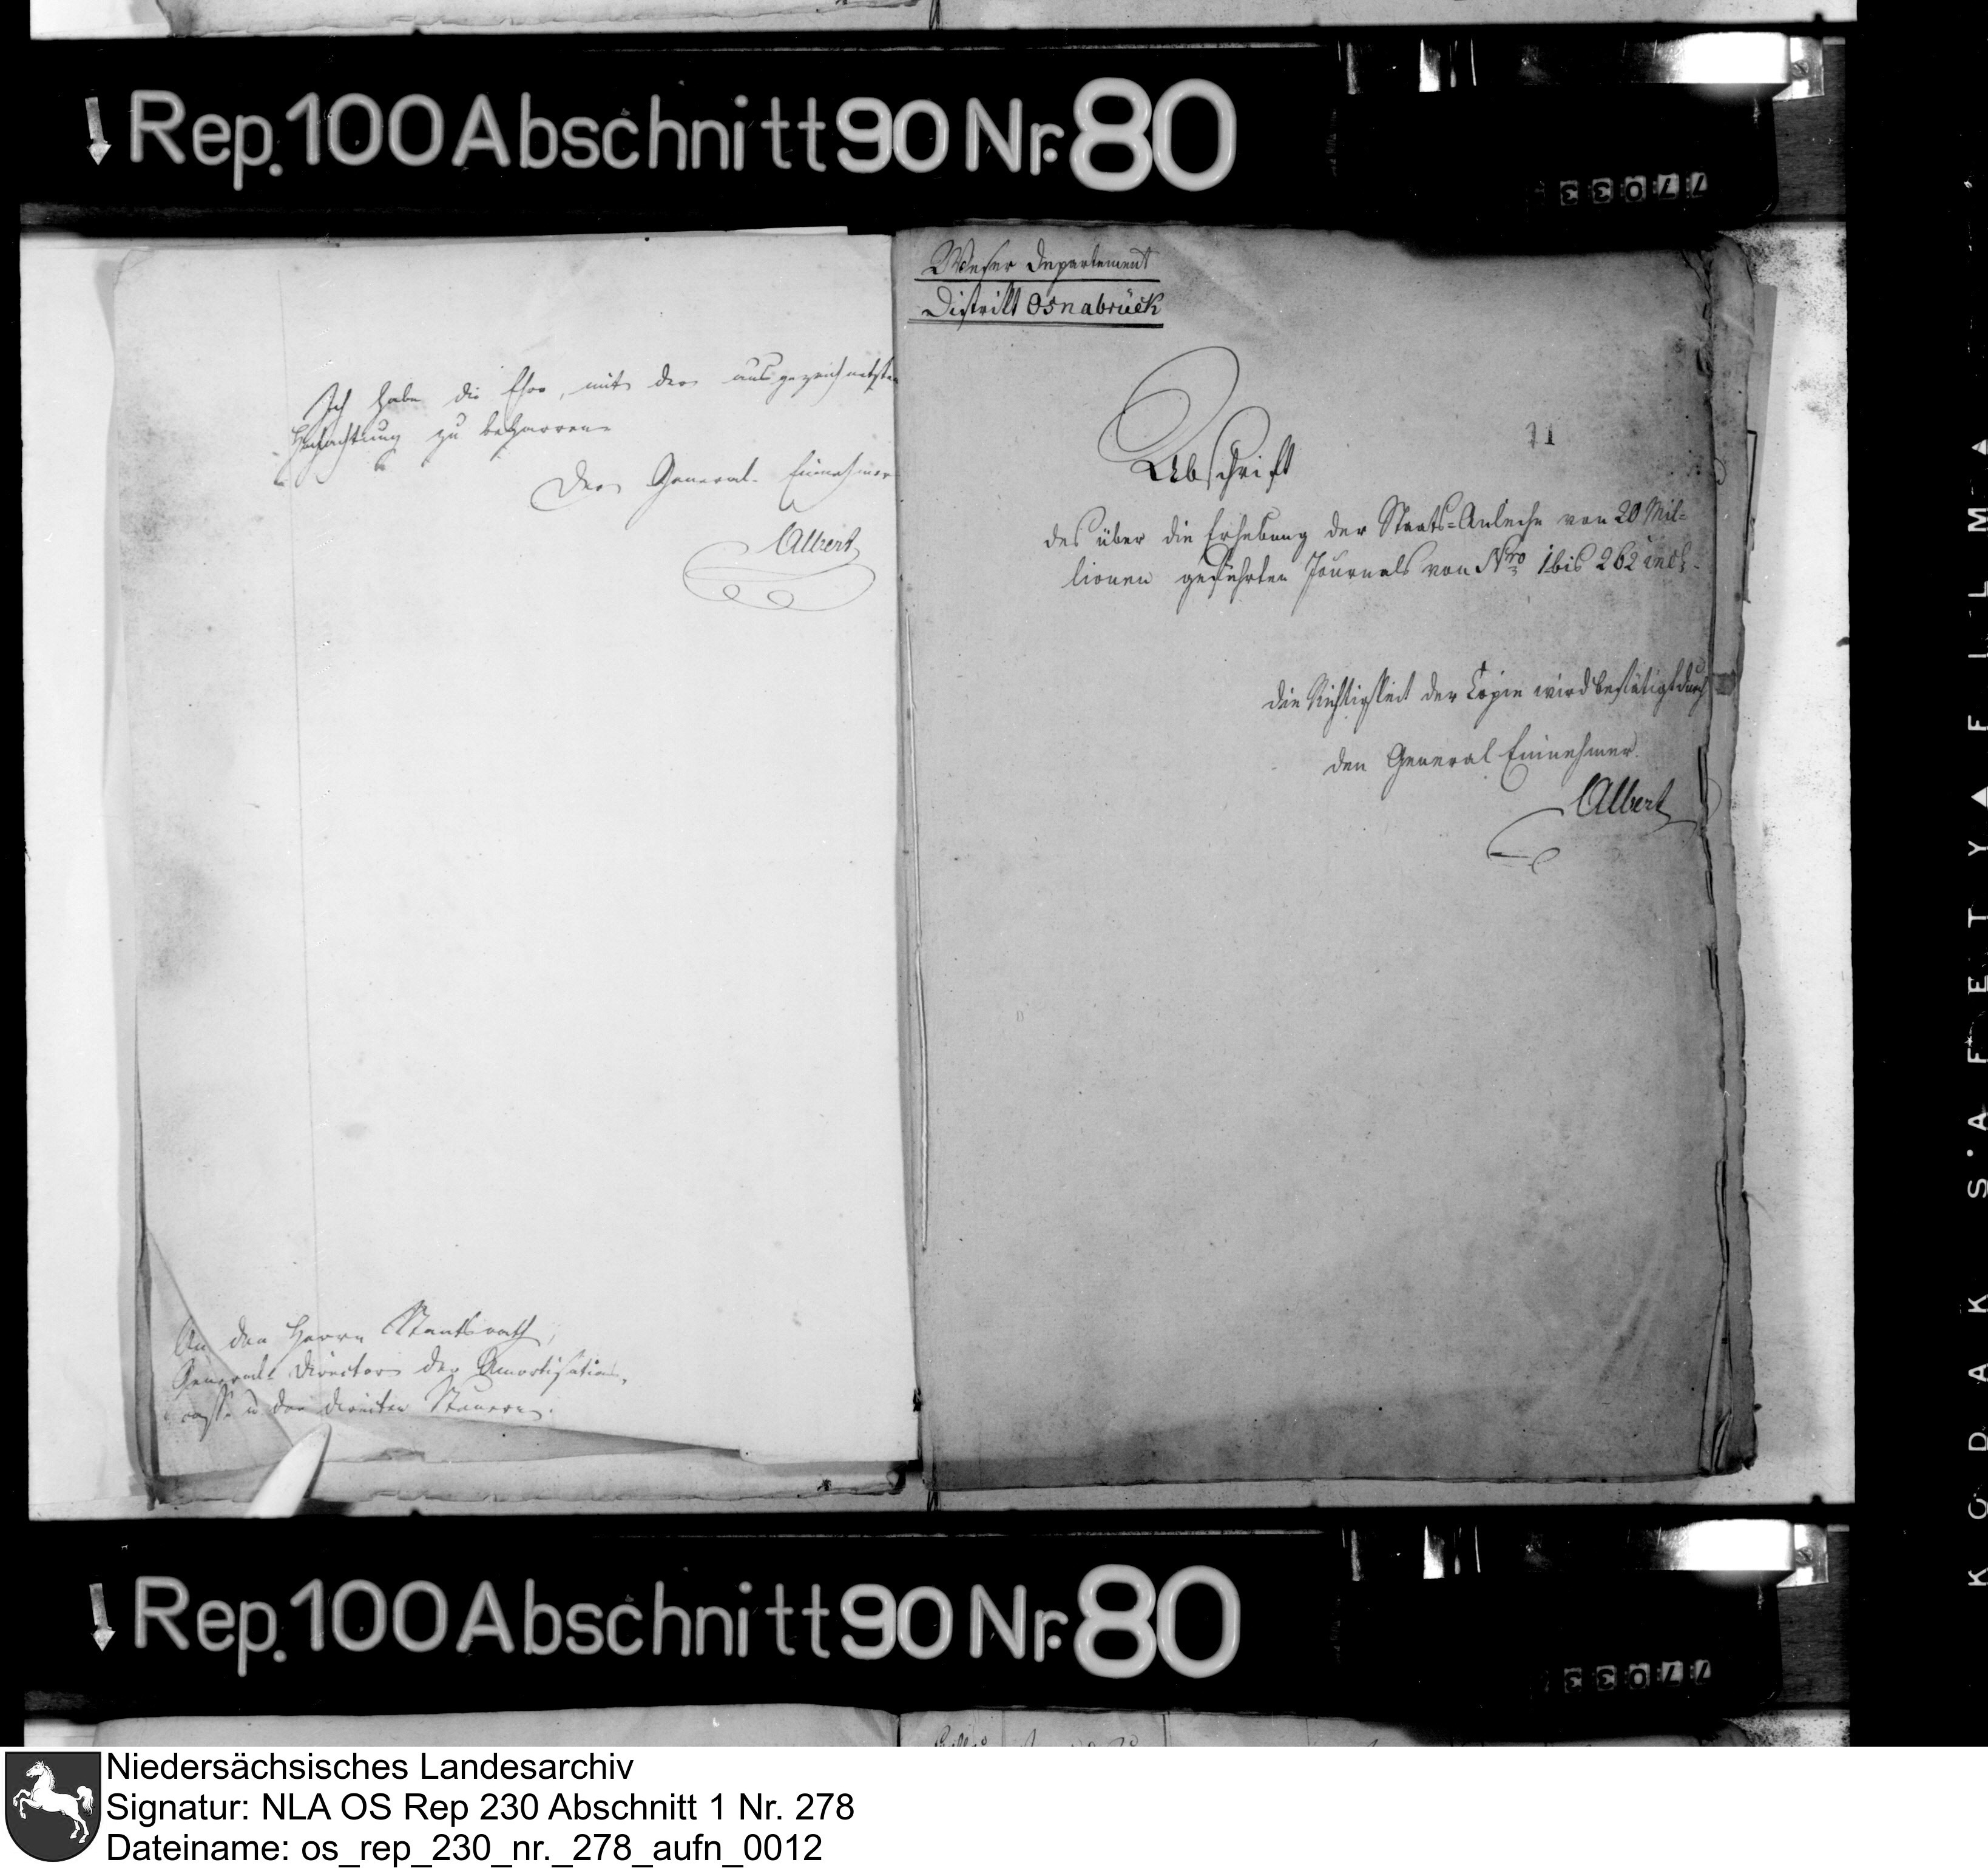 Rep. 100 Abschnitt 90 Nr. 80
77033
Ich habe die Ehre, mit der ausgezeichnetsten
Hochachtung zu beharren
Der General-Einnehmer
Albert
An den Herrn Staatsrath,
General-Director der Amortisations-
casse u der directen Steuern.
Weser Departement
Distrikt Osnabrück
11
Abschrift
des über die Erhebung der Staats=Anleihe von 20 Mil=
lionen geführten Journals von Nro 1 bis 262 incl.
die Richtigkeit der Copie wird bestätigt durch
den General Einnehmer.
Albert
KODAK SAFETY FILM
Rep. 100 Abschnitt 90 Nr. 80
77033
Niedersächsisches Landesarchiv
Signatur: NLA OS Rep 230 Abschnitt 1 Nr. 278
Dateiname: os_rep_230_nr._278_aufn_0012